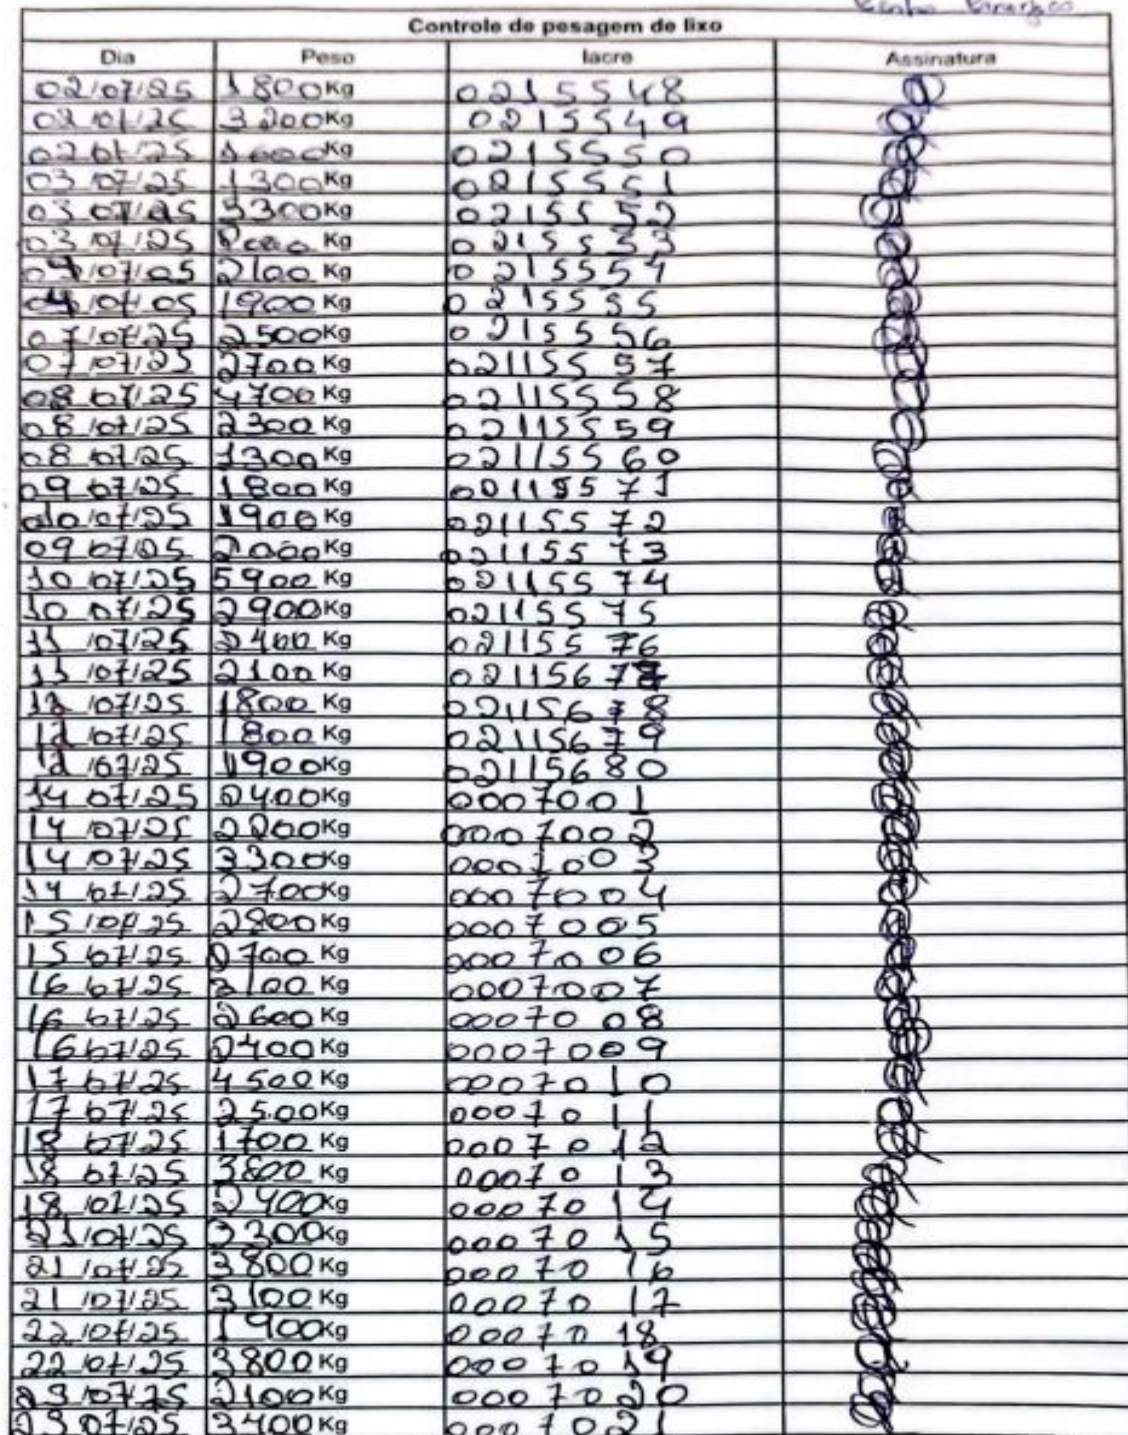 Controle de pesagem de lixo
Dia Peso lacre Assinatura
02/07/25 1800Kg 0215548
02/07/25 3200Kg 0215549
02/07/25 1600Kg 0215550
03/07/25 1300Kg 0215551
03/07/25 3300Kg 0215552
03/07/25 Kg 0215553
04/07/25 2100Kg 0215554
04/07/05 1900Kg 0215555
07/07/25 2500Kg 0215556
07/07/25 2700Kg 02115557
08/07/25 4700Kg 02115558
08/07/25 2300Kg 02115559
08/07/25 1300Kg 02115560
09/07/25 1800Kg 02115571
07/25 1900Kg 02115572
09/07/25 2000Kg 02115573
10/07/25 5900Kg 02115574
10/07/25 2900Kg 02115575
11/07/25 2400Kg 02115576
11/07/25 2100Kg 02115677
12/07/25 1800Kg 02115678
12/07/25 1800Kg 02115679
12/07/25 1900Kg 02115680
14/07/25 2400Kg 0007001
14/07/25 2200Kg 0007002
14/07/25 3300Kg 0007003
14/07/25 2700Kg 0007004
15/07/25 2800Kg 0007005
15/07/25 2700Kg 0007006
16/07/25 3100Kg 0007007
16/07/25 2600Kg 0007008
16/07/25 2400Kg 0007009
17/07/25 4500Kg 0007010
17/07/25 2500Kg 0007011
18/07/25 1700Kg 0007012
18/07/25 3800Kg 0007013
18/07/25 2400Kg 0007014
21/07/25 3300Kg 0007015
21/07/25 3800Kg 0007016
21/07/25 3100Kg 0007017
22/07/25 1900Kg 0007018
22/07/25 3800Kg 0007019
23/07/25 2100Kg 0007020
23/07/25 3400Kg 0007021